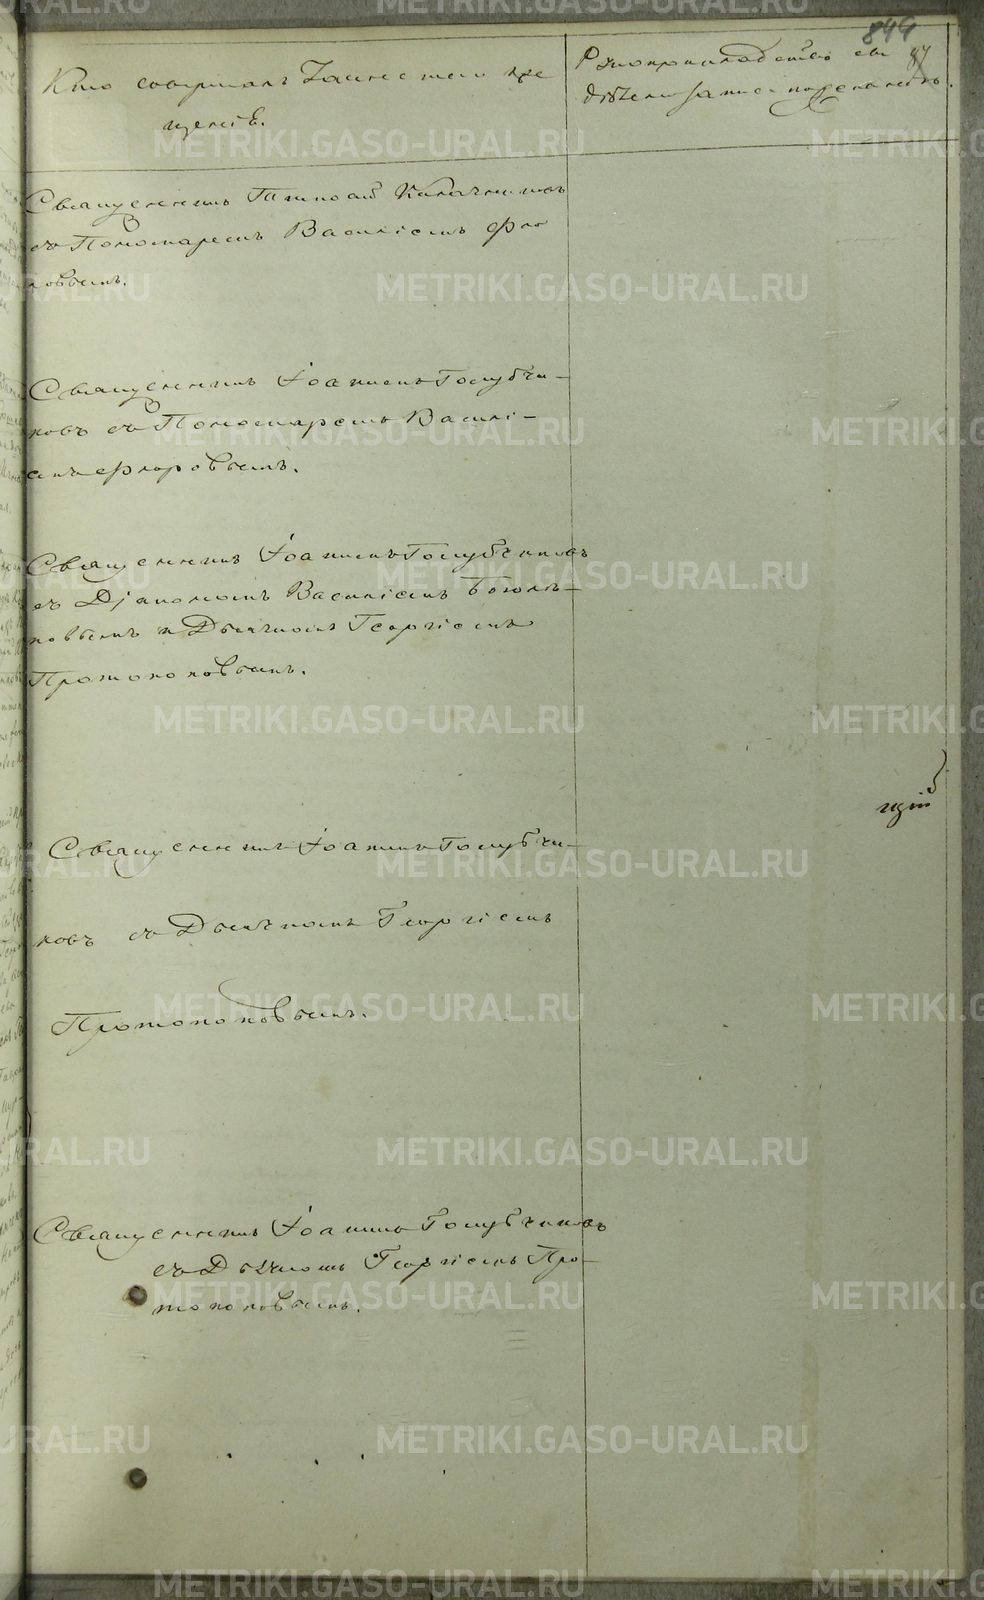 844
87
Кто совершалъ Таинство кре
щенія.
Рукоприкладство сви
дѣтелей записи по желанію.
Священникъ Тимоѳей Калачниковъ
съ Пономаремъ Василіемъ Фло
ровымъ.
Священникъ Іоаннъ Голубчи-
ковъ съ Пономаремъ Васили-
емъ Флоровымъ.
Священникъ Іоаннъ Голубчиковъ
съ Діакономъ Василіемъ
и Дьячкомъ Георгіемъ
Протопоповымъ.
щій
Священникъ Іоаннъ Голубчи-
ковъ съ Дьячкомъ Георгіемъ
Протопоповымъ.
Священникъ Іоаннъ Голубчиковъ
съ Дьячкомъ Георгіемъ Про-
топоповымъ.
METRIKI.GASO-URAL.RU